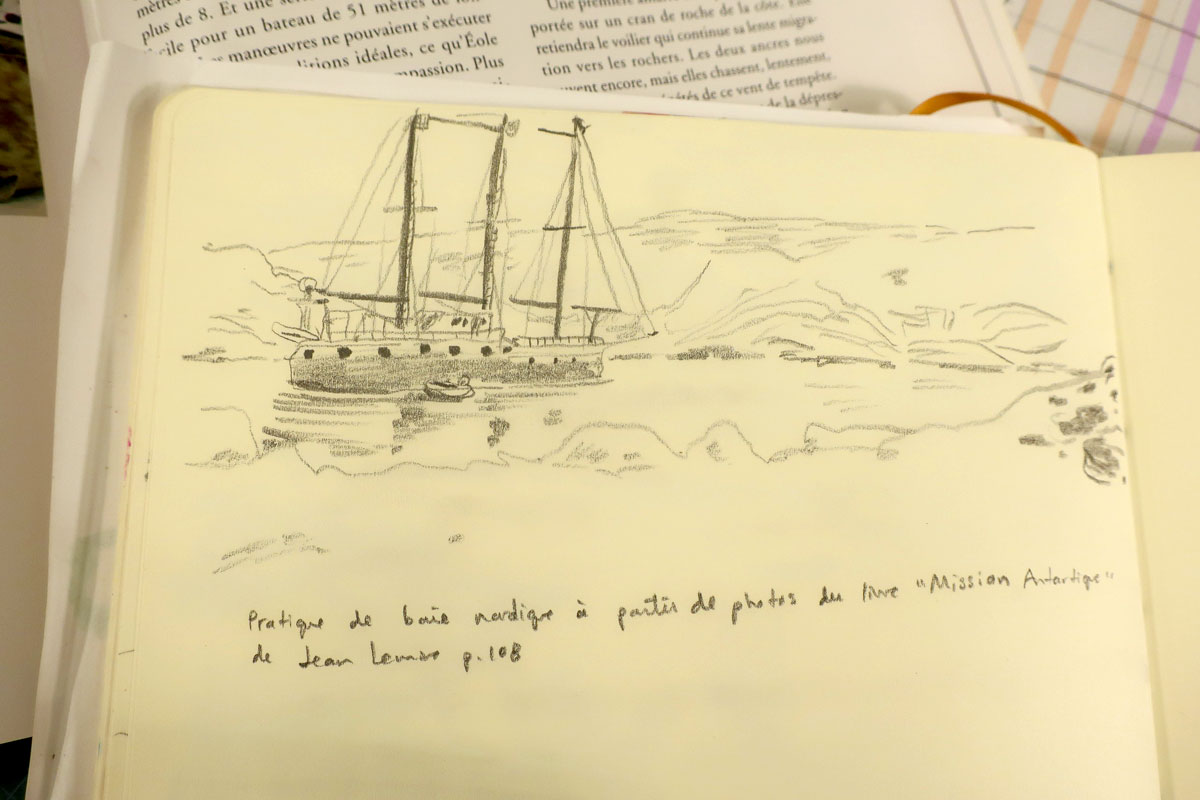 plus de 8. Et une
pour un bateau de 51 mètres de
manœuvres ne pouvaient s'exécuter
idéales, ce qu'Éole
Plus
Une première
portée sur un cran de roche de la côte. Elle
retiendra le voilier qui continue sa lente migra-
tion vers les rochers. Les deux ancres nous
encore, mais elles chassent, lentement,
de ce vent de tempête.
de la dépres-
Pratique de baie nordique à partir de photos du livre "Mission Antartique"
de Jean Lemire p.108